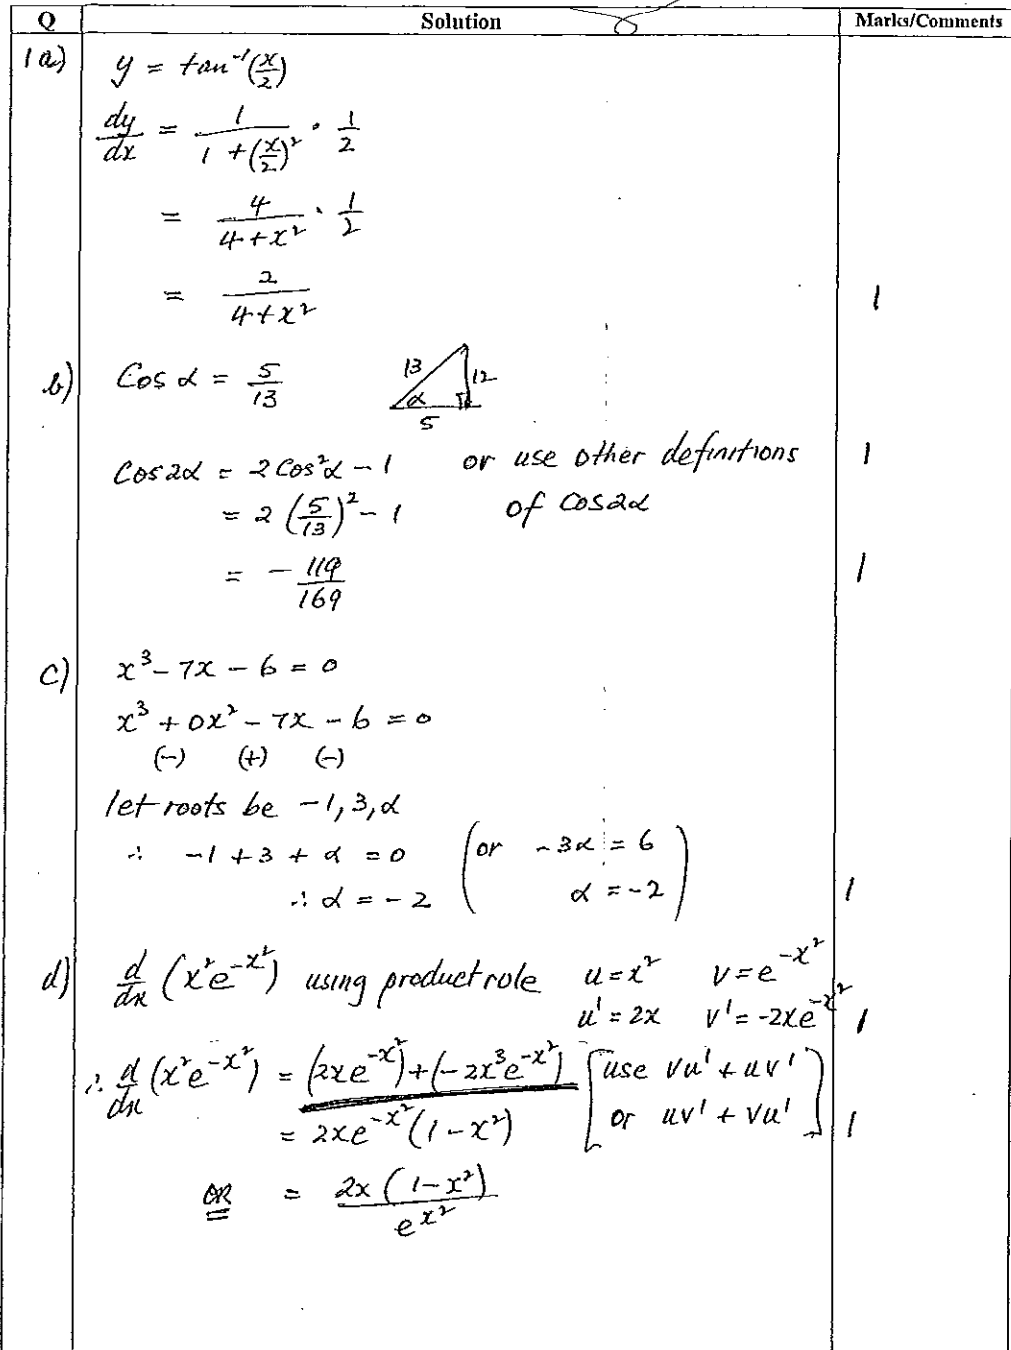 Q Solution Marks/Comments
1a) y = tan⁻¹(x/2)
dy/dx = 1/(1 + (x/2)²) · 1/2
= 4/(4+x²) · 1/2
= 2/(4+x²) 1
b) Cos α = 5/13 13 12 α 5
Cos2α = 2Cos²α − 1 or use other definitions 1
= 2(5/13)² − 1 of Cos2α
= − 119/169 1
c) x³ − 7x − 6 = 0
x³ + 0x² − 7x − 6 = 0
(−) (+) (−)
let roots be −1, 3, α
∴ −1 + 3 + α = 0 (or −3α = 6
∴ α = −2 α = −2) 1
d) d/dx (x²e^(−x²)) using product role u = x² v = e^(−x²)
u' = 2x v' = −2xe^(−x²) 1
∴ d/dx (x²e^(−x²)) = (2xe^(−x²)) + (−2x³e^(−x²)) [use vu' + uv'
= 2xe^(−x²)(1 − x²) or uv' + vu'] 1
OR = 2x(1−x²)/e^(x²)